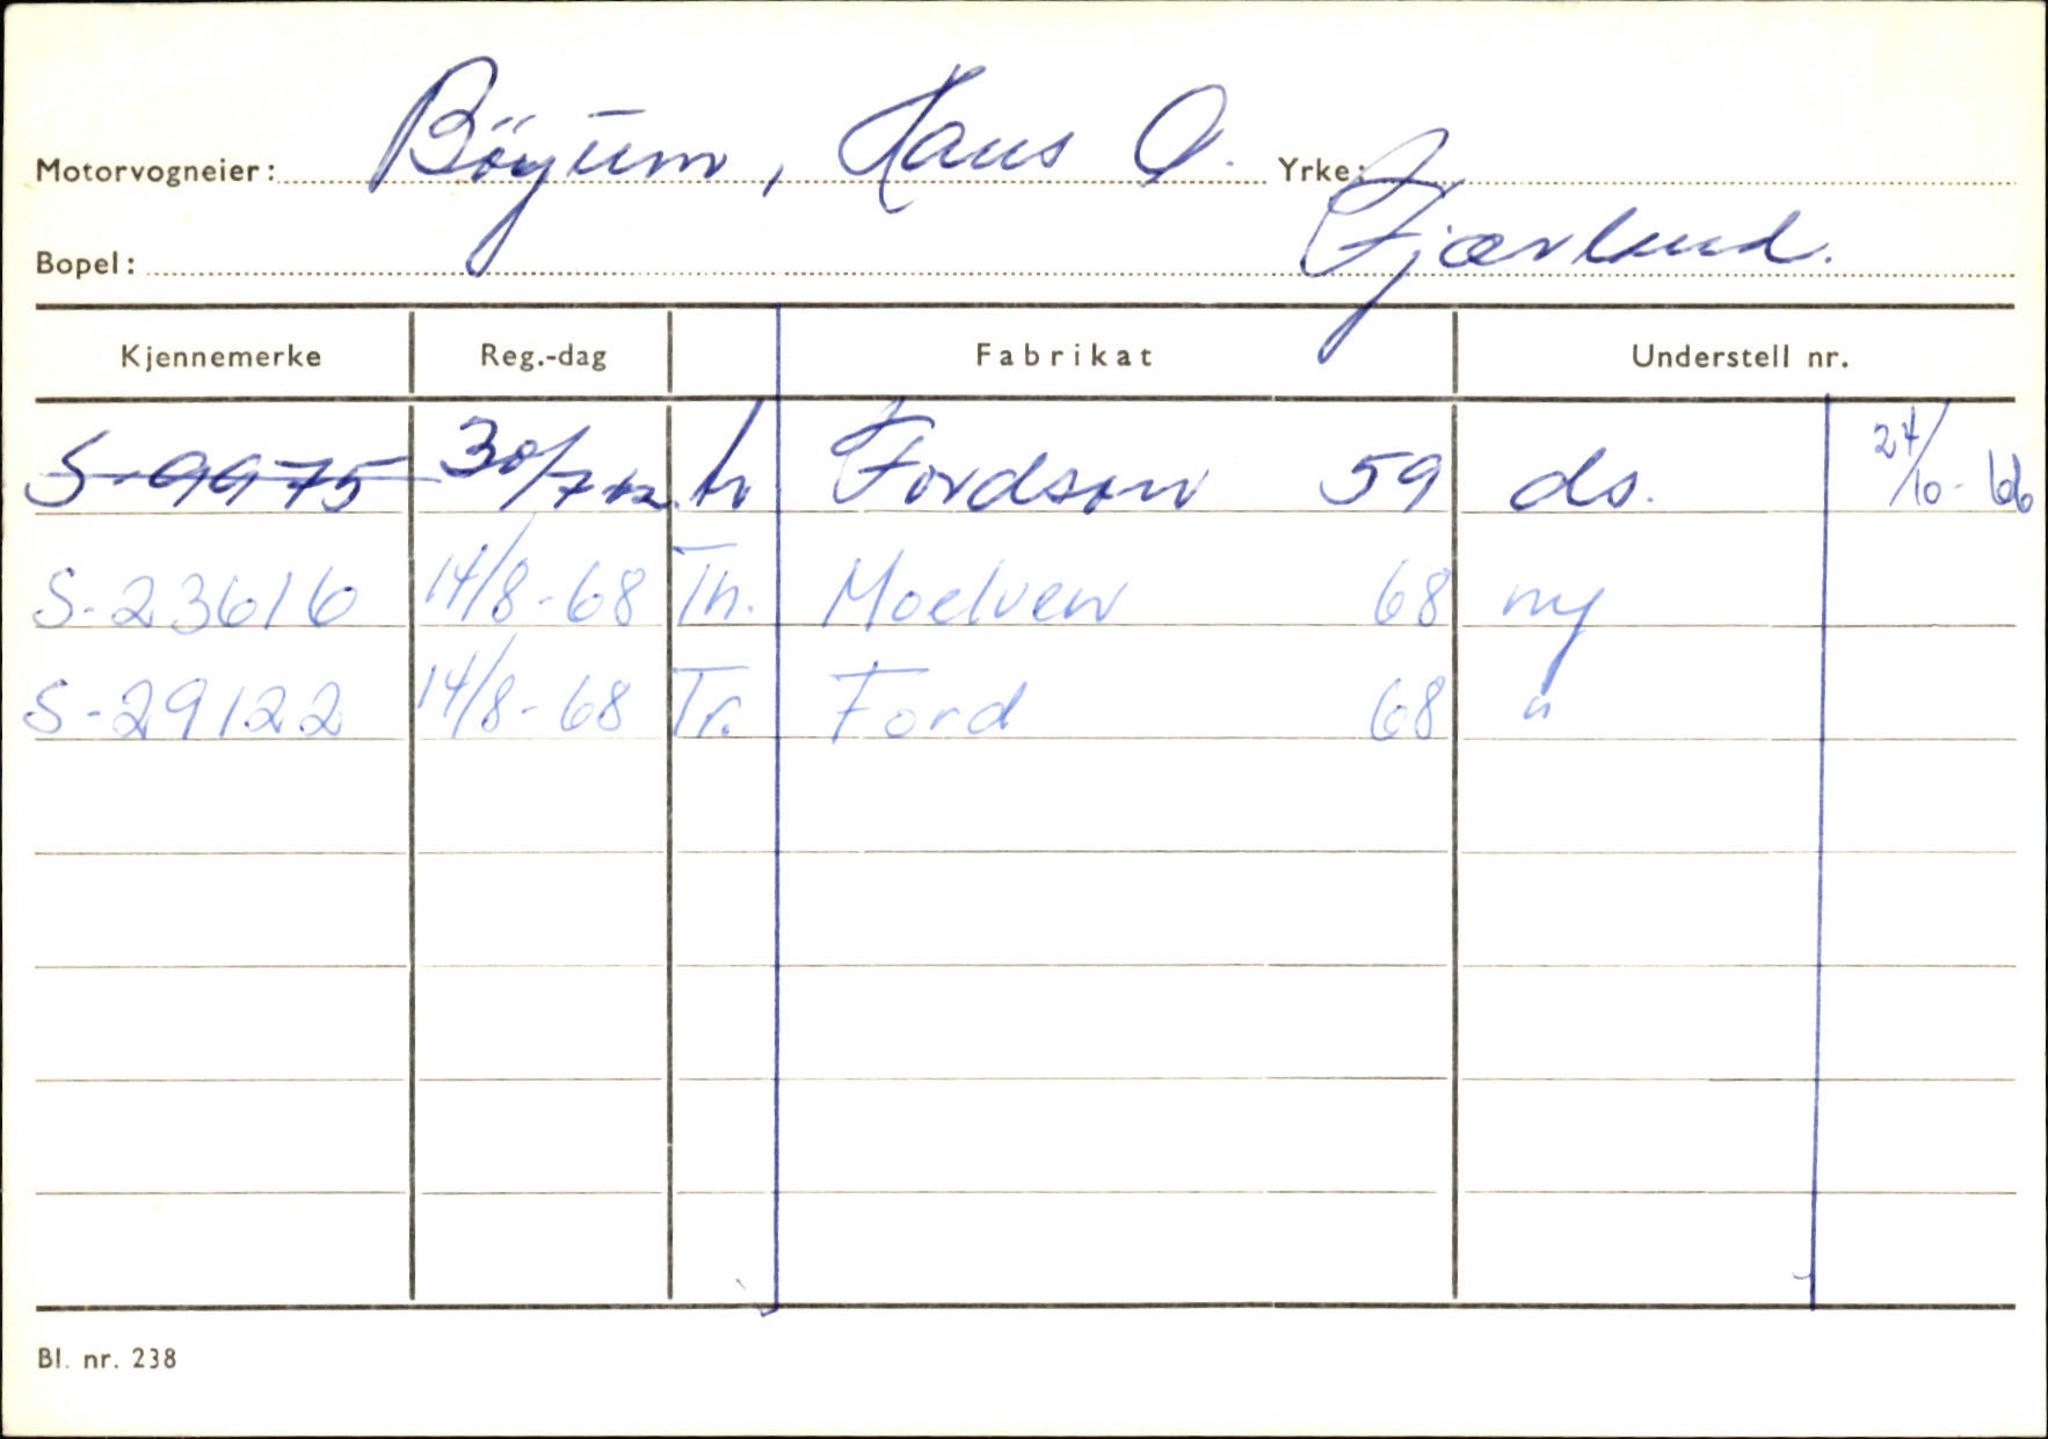 Motorvogneier: Böyum, Hans O. Yrke:
Bopel: Fjærland.
Kjennemerke Reg.-dag Fabrikat Understell nr.
S-9975 30/7 62 tr Fordson 59 ds. 24/10-66
S-23616 14/8-68 Th. Moelven 68 ny
S-29122 14/8-68 Tr. Ford 68 "
Bl. nr. 238